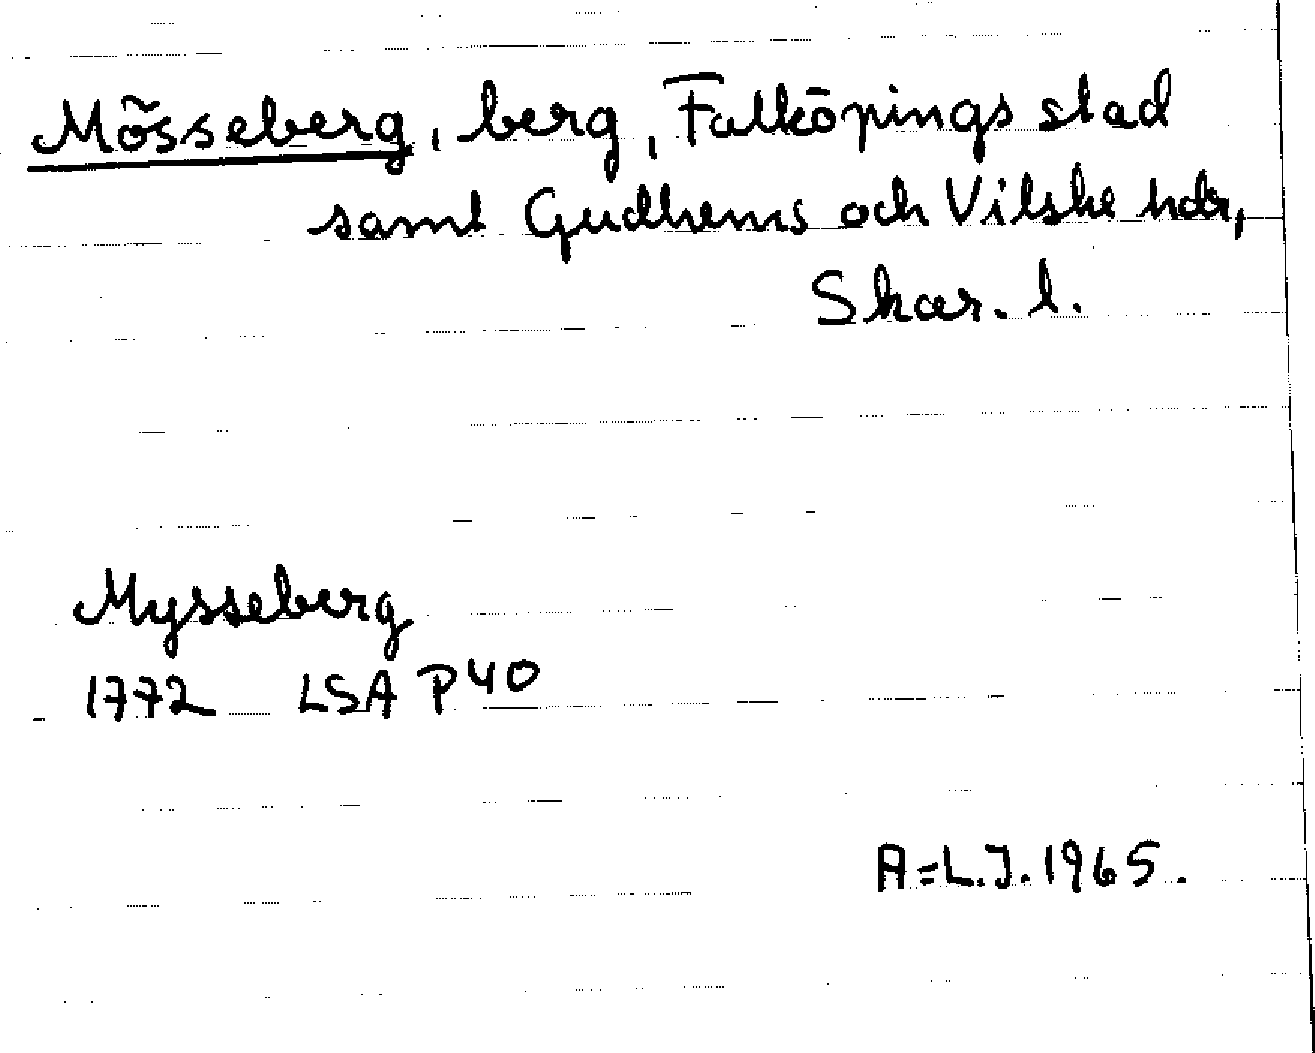 Mösseberg, berg, Falköpings stad
samt Gudhems och Vilske hdr,
Skar. l.
Mysseberg
1772 LSA P40
A-L.J. 1965.